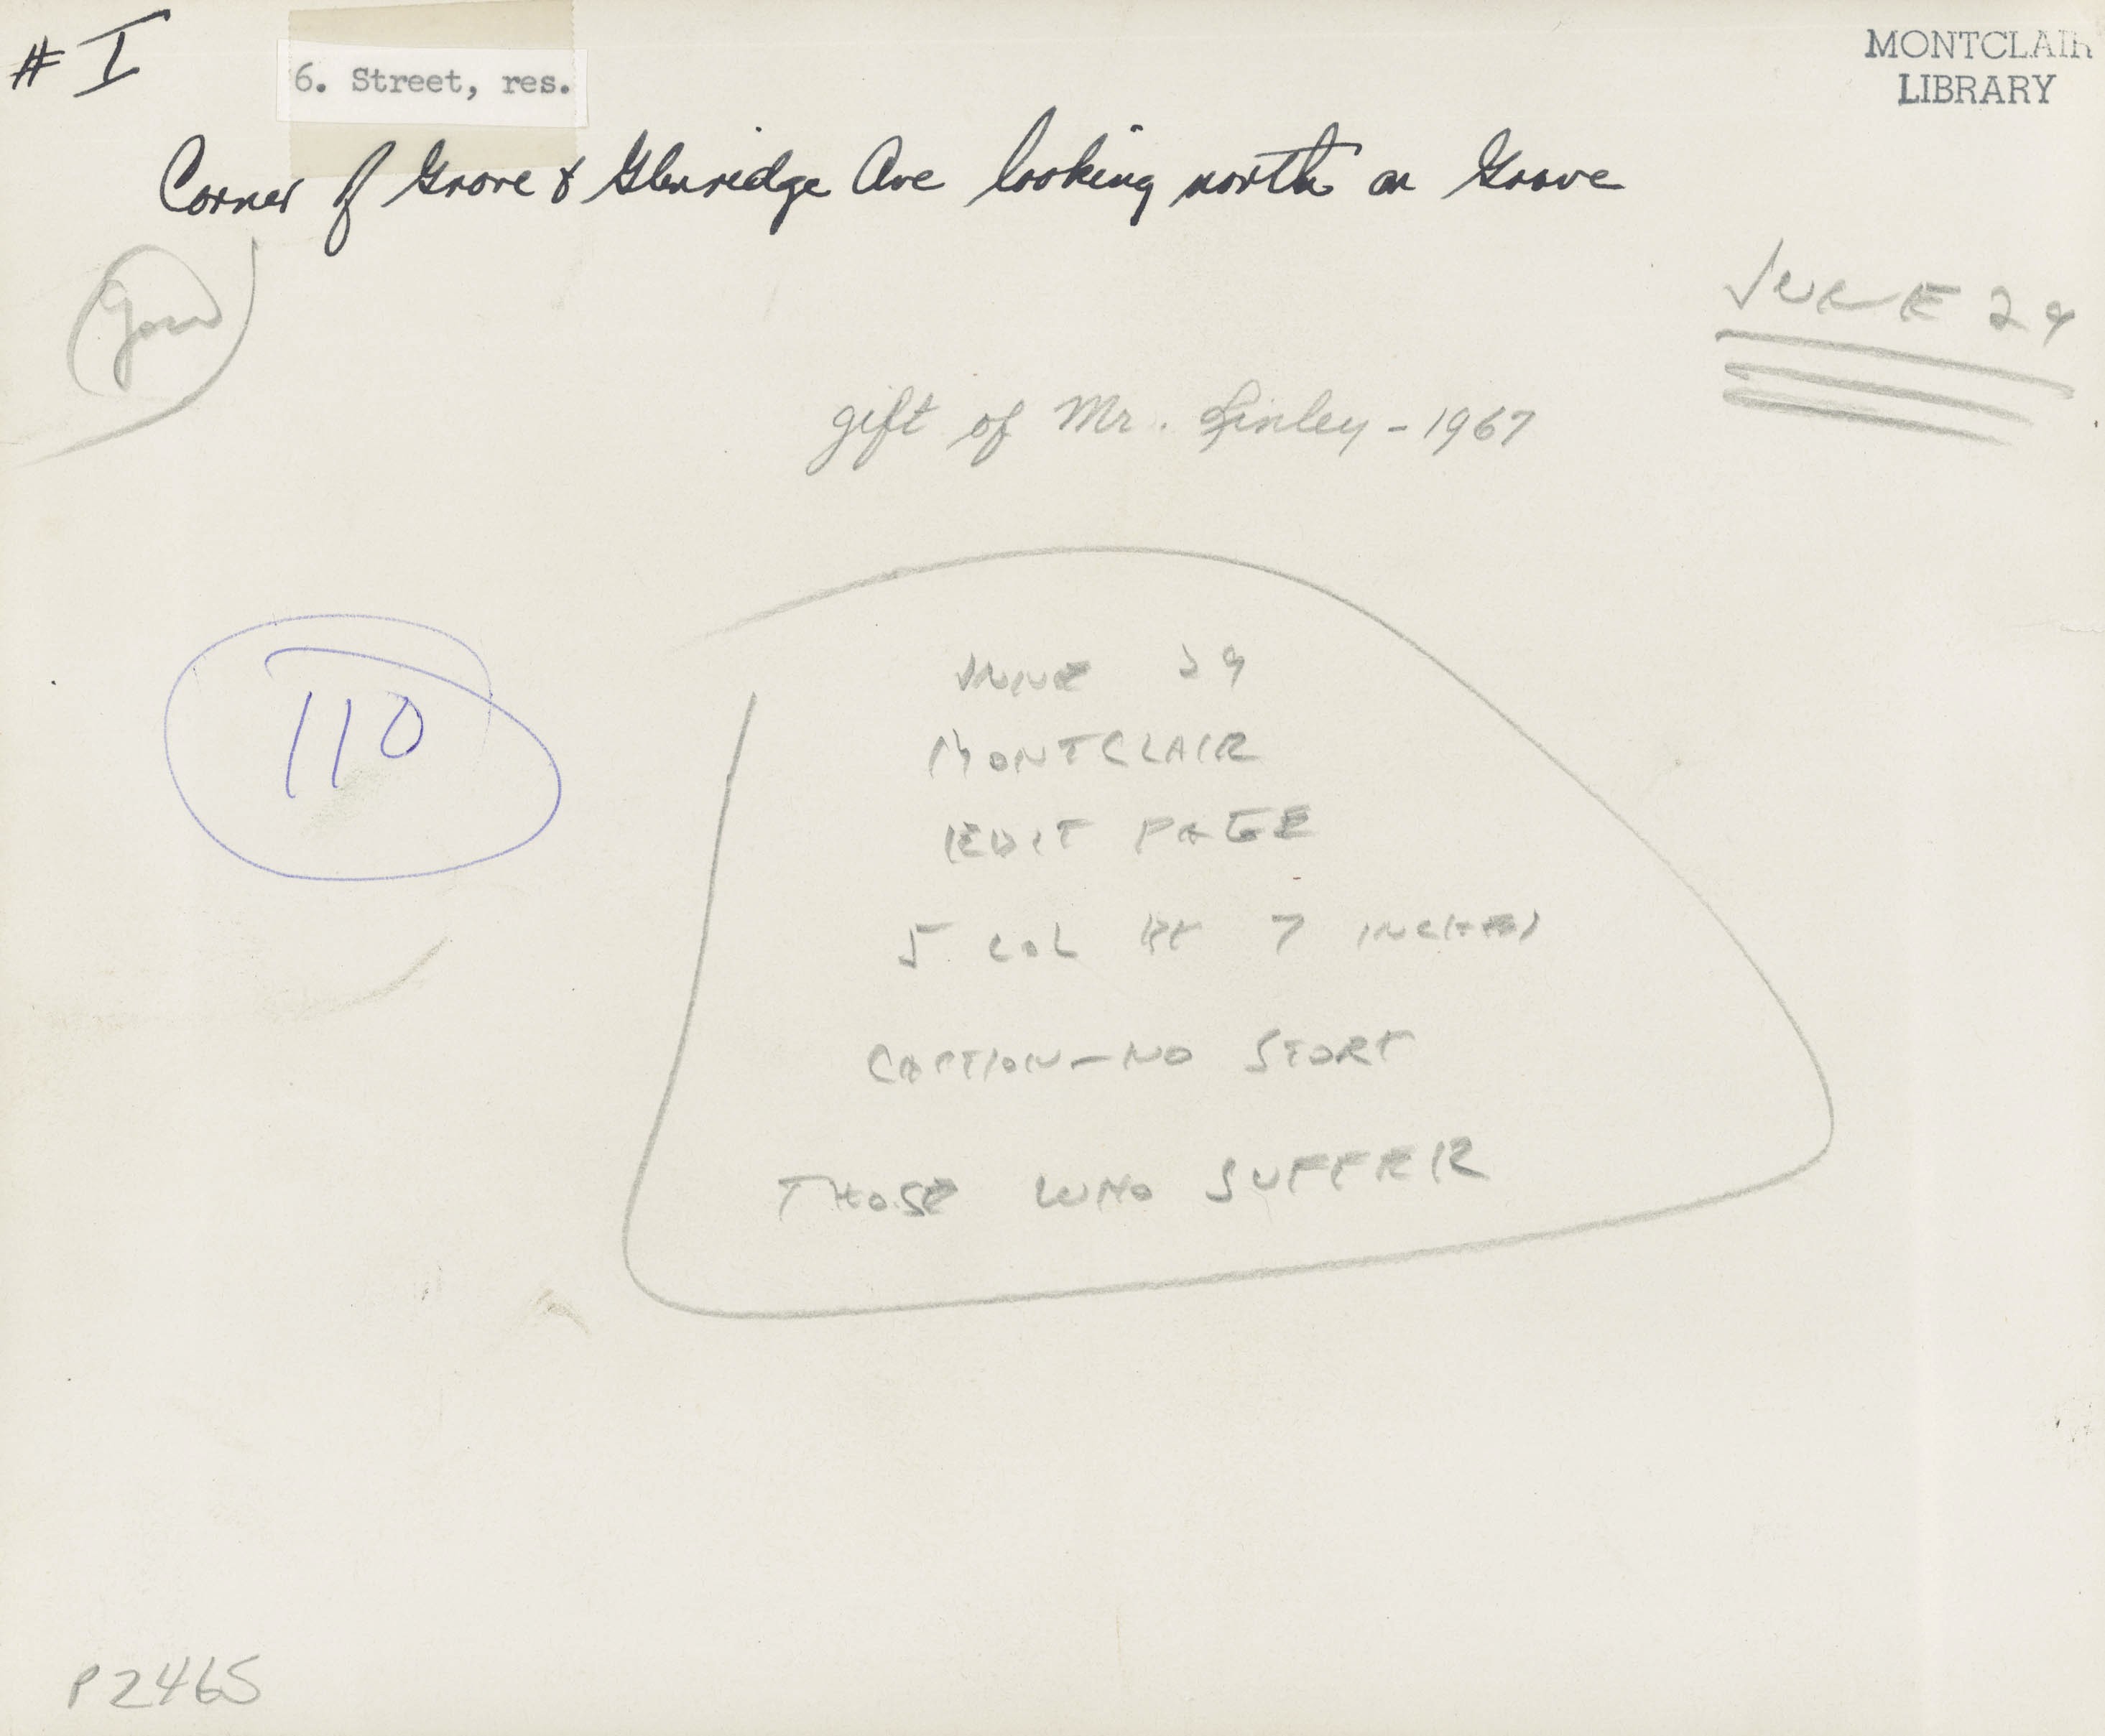 # I
6. Street, res.
MONTCLAIR
LIBRARY
Corner of Grove & Glenridge Ave looking north on Grove
JUNE 29
gift of Mr. Finley - 1967
110
JUNE 29
MONTCLAIR
EDIT PAGE
5 COL BY 7 INCHES
CAPTION - NO STORY
THOSE WHO SUFFER
P2465